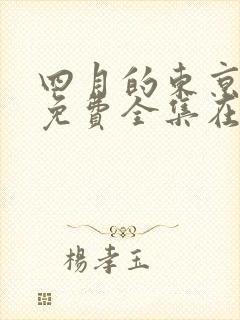 四月的東京
免費全集在
楊孝玉